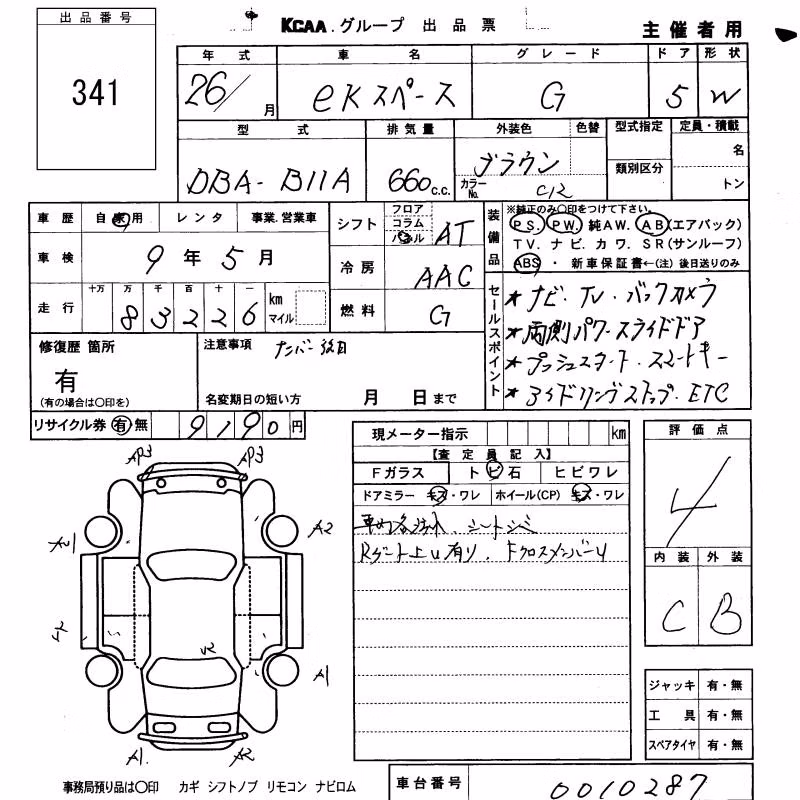 出品番号
341
KCAA.グループ 出品票
主催者用
年式 車名 グレード ドア 形状
26/ 月 eKスペース G 5 W
型式 排気量 外装色 色替 型式指定 定員・積載
DBA-B11A 660 c.c. ブラウン 類別区分 名
カラーNo. C12 トン
車歴 自家用 レンタ 事業.営業車
シフト フロア コラム パネル AT
車検 9年5月
冷房 AAC
走行 十万 万 千 百 十 一
83226 km マイル
燃料 G
装備品
※純正のみ〇印をつけて下さい。
PS. PW. 純AW. AB(エアバック)
TV. ナビ. カワ. SR(サンルーフ)
ABS ・ 新車保証書←(注) 後日送りのみ
セールスポイント
★ナビ.TV.バックカメラ
★両側パワースライドドア
★プッシュスタート.スマートキー
★アイドリングストップ.ETC
修復歴 箇所
有
(有の場合は〇印を)
注意事項
名変期日の短い方 月 日まで
リサイクル券 有 無 9190円
現メーター指示 km
【査定員記入】
Fガラス トビ石 ヒビワレ
ドアミラー キズ・ワレ ホイール(CP) キズ・ワレ
評価点
4
内装 外装
C B
AP3 AP3
A2
A1
A1. A2
ジャッキ 有・無
工具 有・無
スペアタイヤ 有・無
事務局預り品は〇印 カギ シフトノブ リモコン ナビロム
車台番号 0010287